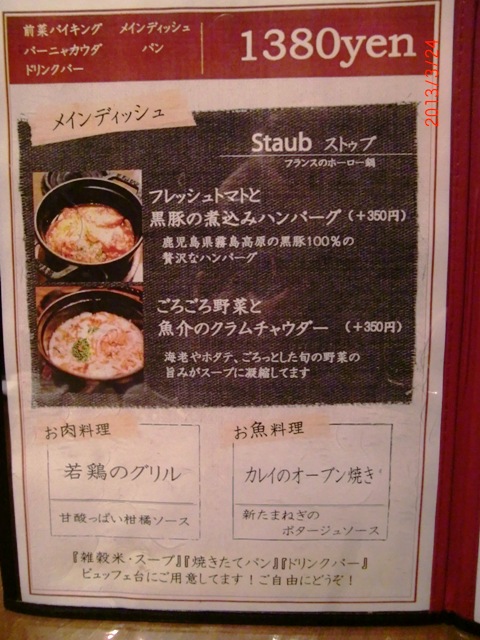 前菜バイキング　メインディッシュ
バーニャカウダ　パン
ドリンクバー
1380yen
2013/3/24
メインディッシュ
Staub ストゥブ
フランスのホーロー鍋
フレッシュトマトと
黒豚の煮込みハンバーグ（+350円）
鹿児島県霧島高原の黒豚100%の
贅沢なハンバーグ
ごろごろ野菜と
魚介のクラムチャウダー （+350円）
海老やホタテ、ごろっとした旬の野菜の
旨みがスープに凝縮してます
お肉料理
若鶏のグリル
甘酸っぱい柑橘ソース
お魚料理
カレイのオーブン焼き
新たまねぎの
ポタージュソース
『雑穀米・スープ』『焼きたてパン』『ドリンクバー』
ビュッフェ台にご用意してます！ご自由にどうぞ！